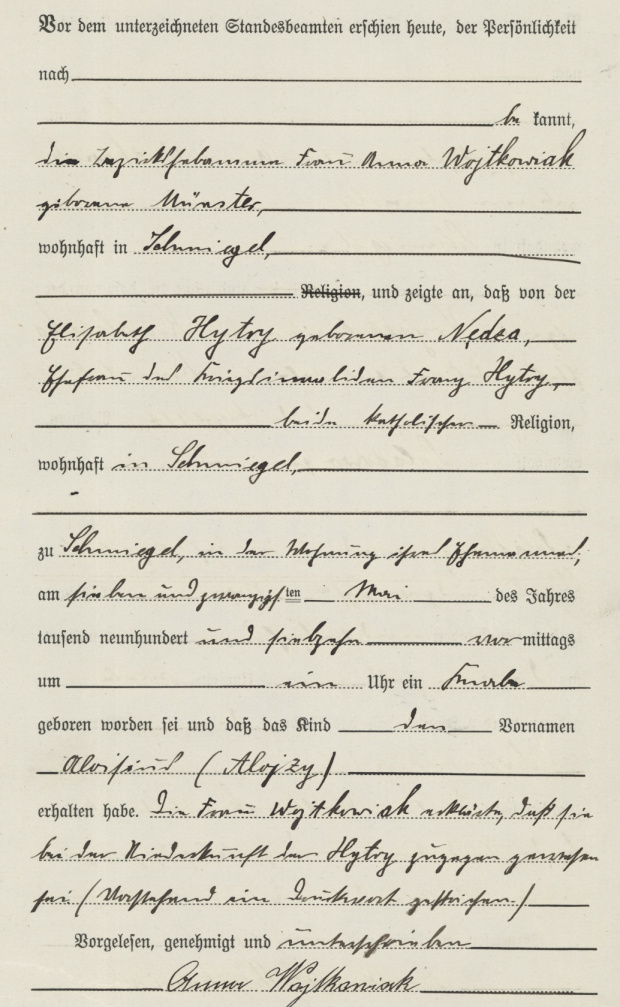 Vor dem unterzeichneten Standesbeamten erschien heute, der Persönlichkeit
nach
be kannt,
die Bezirkshebamme Frau Anna Wojtkowiak
geborene Münster,
wohnhaft in Schmiegel,
Religion, und zeigte an, daß von der
Elisabeth Hytry geborenen Nędza,
Ehefrau des Kriegsinvaliden Franz Hytry,
beide katholischer Religion,
wohnhaft in Schmiegel,
zu Schmiegel, in der Wohnung ihres Ehemannes,
am sieben und zwanzigsten Mai des Jahres
tausend neunhundert und siebzehn vor mittags
um ein Uhr ein Knabe
geboren worden sei und daß das Kind den Vornamen
Aloisius (Alojzy)
erhalten habe. Die Frau Wojtkowiak erklärte, daß sie
bei der Niederkunft der Hytry zugegen gewesen
sei (Vorstehend ein Druckwort gestrichen)
Vorgelesen, genehmigt und unterschrieben
Anna Wojtkowiak